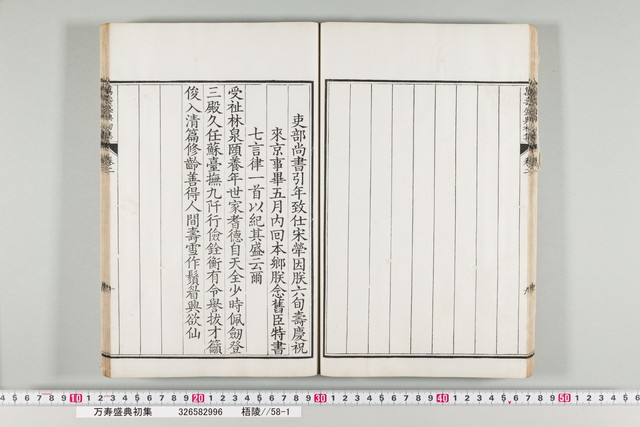 吏部尚書引年致仕宋犖因朕六旬壽慶祝
來京事畢五月內回本鄉朕念舊臣特書
七言律一首以紀其盛云爾
受祉林泉頤養年世家耆德自天全少時佩劒登
三殿久任蘇臺撫九阡行儉銓衡有令譽拔才籲
俊入清篇修齡善得人間壽雪作鬚眉興欲仙
10 20 30 40 50
万寿盛典初集 326582996 梧陵//58-1